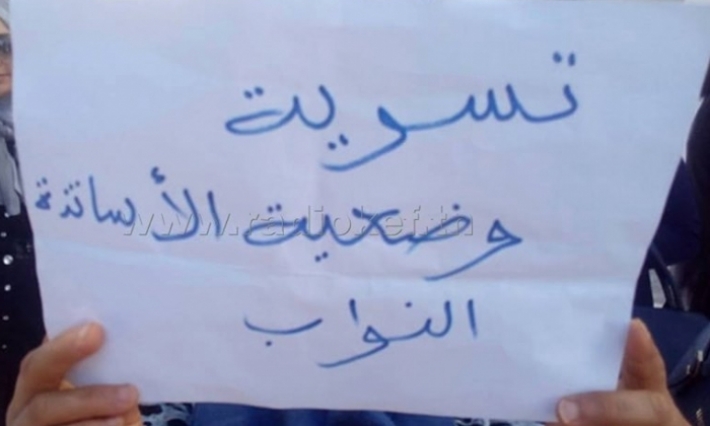 تسوية
وضعية الأساتذة
النواب
www.radiokef.tn